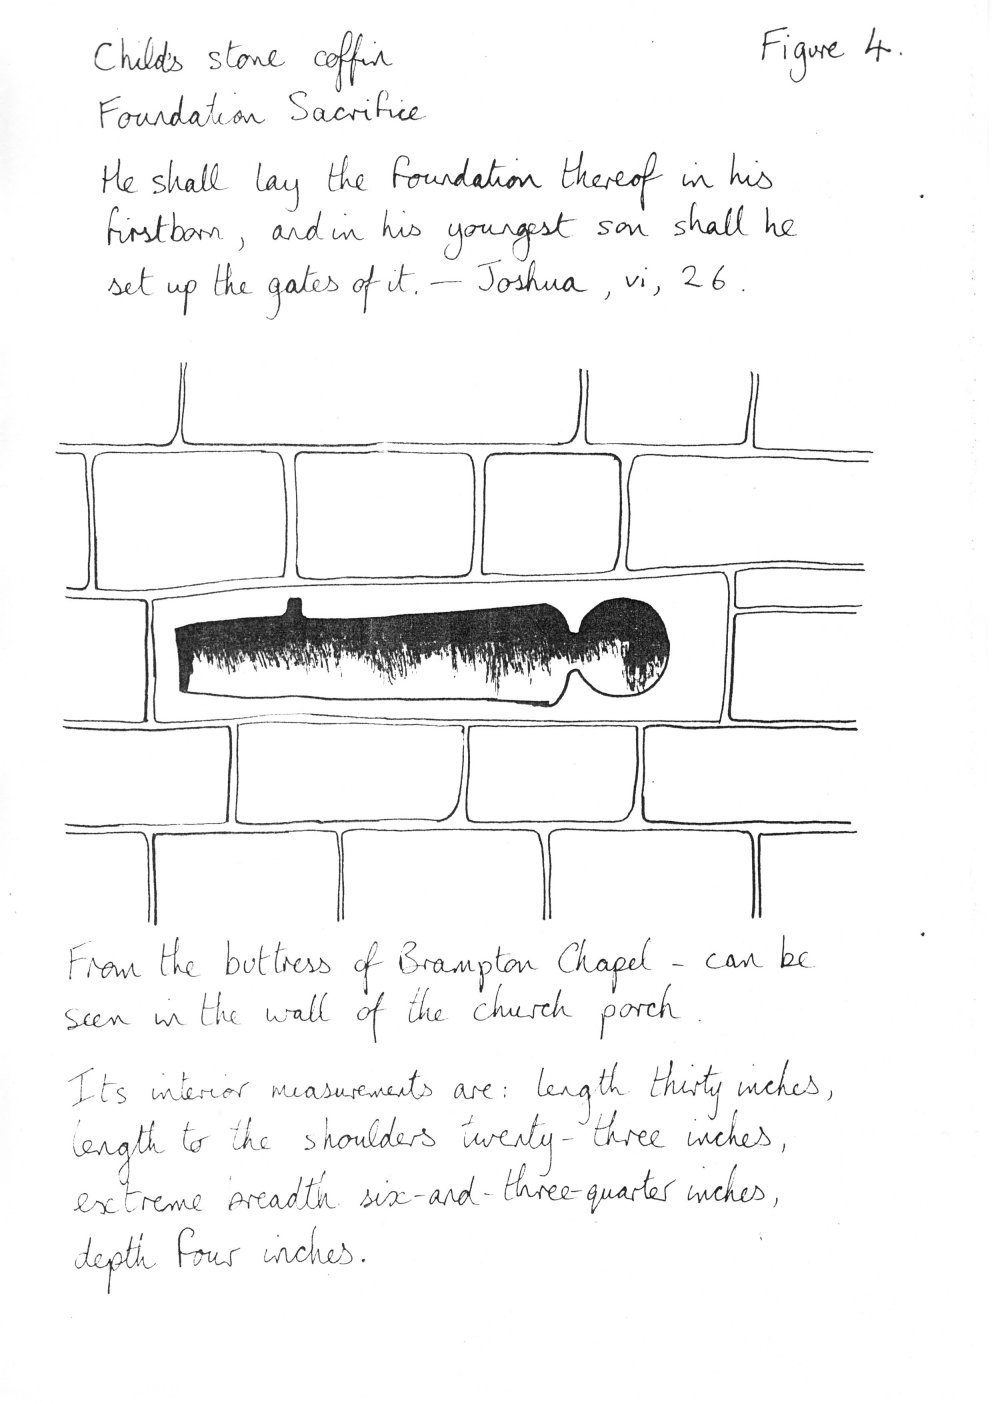 Child's stone coffin
Figure 4.
Foundation Sacrifice
He shall lay the foundation thereof in his
firstborn, and in his youngest son shall he
set up the gates of it. — Joshua, vi, 26.
From the buttress of Brampton Chapel - can be
seen in the wall of the church porch.
Its interior measurements are: length thirty inches,
length to the shoulders twenty-three inches,
extreme breadth six-and-three-quarter inches,
depth four inches.